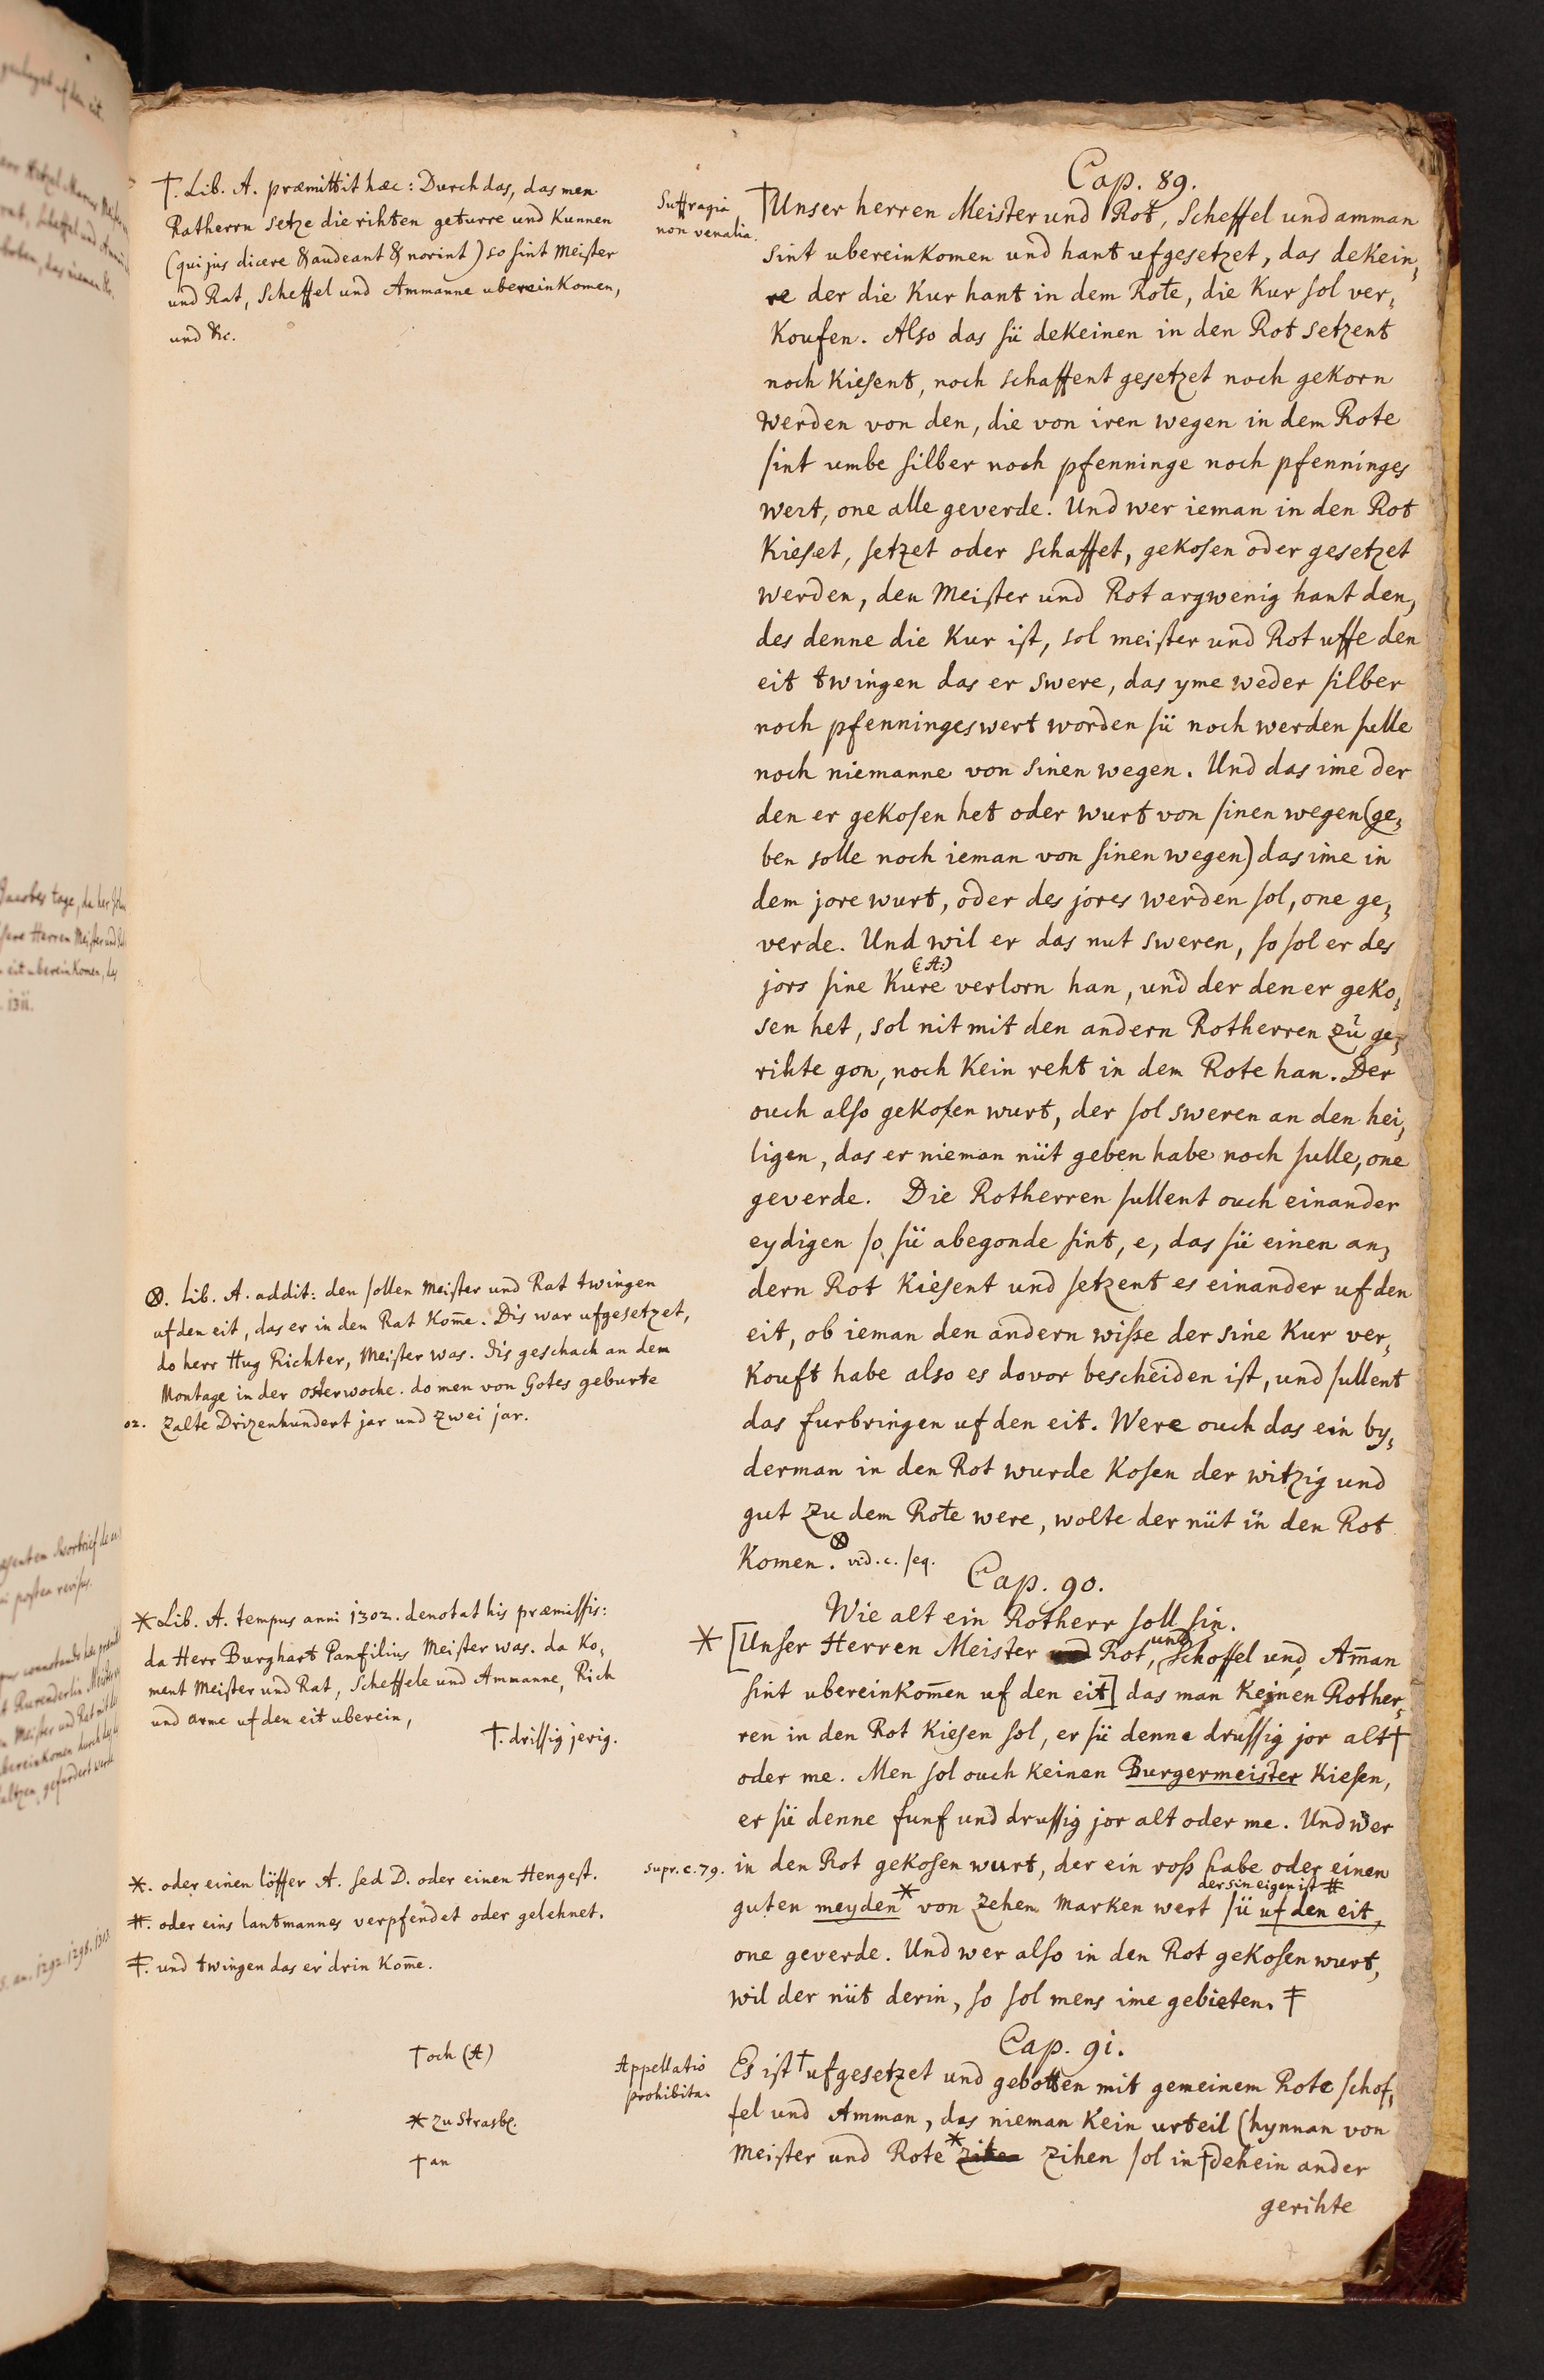 Cap. 89.
†Unser herren Meister und Rot, Scheffel und amman
sint ubereinkomen und hant ufgesetzet, das dekein,
re der die Kur hant in dem Rote, die Kur sol ver,
koufen. Also das sü dekeinen in den Rot setzent
noch kiesent, noch schaffent gesetzet noch gekorn
werden von den, die von iren wegen in dem Rote
sint umbe silber noch pfenninge noch pfenninges
wert, one alle geverde. Und wer ieman in den Rot
kieset, setzet oder schaffet, gekosen oder gesetzet
werden, den Meister und Rot argwenig hant den,
des denne die Kur ist, sol meister und Rot uffe den
eit twingen das er swere, das yme weder silber
noch pfenningeswert worden sü noch werden sulle
noch niemanne von sinen wegen. Und das ime der
den er gekosen het oder wurt von sinen wegen (ge,
ben solle noch ieman von sinen wegen) das ime in
dem jore wurt, oder des jores werden sol, one ge,
verde. Und wil er das nut sweren, so sol er des
(A:)
jors sine Kure verlorn han, und der den er geko,
sen het, sol nit mit den andern Rotherren zů ge,
rihte gon, noch kein reht in dem Rote han. Der
ouch also gekosen wurt, der sol sweren an den hei,
ligen, das er nieman nüt geben habe noch sulle, one
geverde. Die Rotherren sullent ouch einander
eydigen so sü abegonde sint, e, das sü einen an,
dern Rot kiesent und setzent es einander uf den
eit, ob ieman den andern wisse der sine Kur ver,
kouft habe also es dovor bescheiden ist, und sullent
das furbringen uf den eit. Were ouch das ein by,
derman in den Rot wurde kosen der witzig und
gut zu dem Rote were, wolte der nüt in den Rot
komen. ⊗ vid. c. seq.
Cap. 90.
Wie alt ein Rotherr soll sin.
* [Unser Herren Meister und Rot, und Schoffel und Am̄an
sint ubereinkom̄en uf den eit] das man keinen Rother,
ren in den Rot kiesen sol, er sü denne drussig jor alt†
oder me. Men sol ouch keinen Burgermeister kiesen,
er sü denne funf und drussig jor alt oder me. Und wer
in den Rot gekosen wurt, der ein ross habe oder einen
der sin eigen ist #
guten meyden* von zehen marken wert sü uf den eit,
one geverde. Und wer also in den Rot gekosen wurt,
wil der nüt derin, so sol mens ime gebieten. ‡
Cap. 91.
Es ist † ufgesetzet und gebotten mit gemeinem Rote schof,
fel und Amman, das nieman kein urteil (hynnan von
Meister und Rote * zihen sol in † dehein ander
gerihte
Suffragia
non venalia.
supr. c. 79.
Appellatio
prohibita.
†. Lib. A. præmittit hæc: Durch das, das men
Ratherrn setze die rihten geturre und kunnen
(qui jus dicere & audeant & norint) so sint Meister
und Rat, Scheffel und Ammanne ubereinkomen,
und &c.
⊗. Lib. A. addit: den sollen meister und Rat twingen
uf den eit, das er in den Rat kom̄e. Dis war ufgesetzet,
do herr Hug Richter, Meister was. Dis geschach an dem
Montage in der osterwoche. do men von Gotes geburte
02. zalte Drizenhundert jar und zwei jar.
* Lib. A. tempus anni 1302. denotat his præmissis:
da Herr Burghart Panfilius Meister was. da ko,
ment Meister und Rat, Scheffele und Ammanne, Rich
und arme uf den eit uberein,
†. drissig jerig.
*. oder einen löffer A. sed D. oder einen Hengest.
#. oder eins lantmannes verpfendet oder gelehnet.
‡. und twingen das er drin kom̄e.
† och (A)
* zu Strasb.
† an